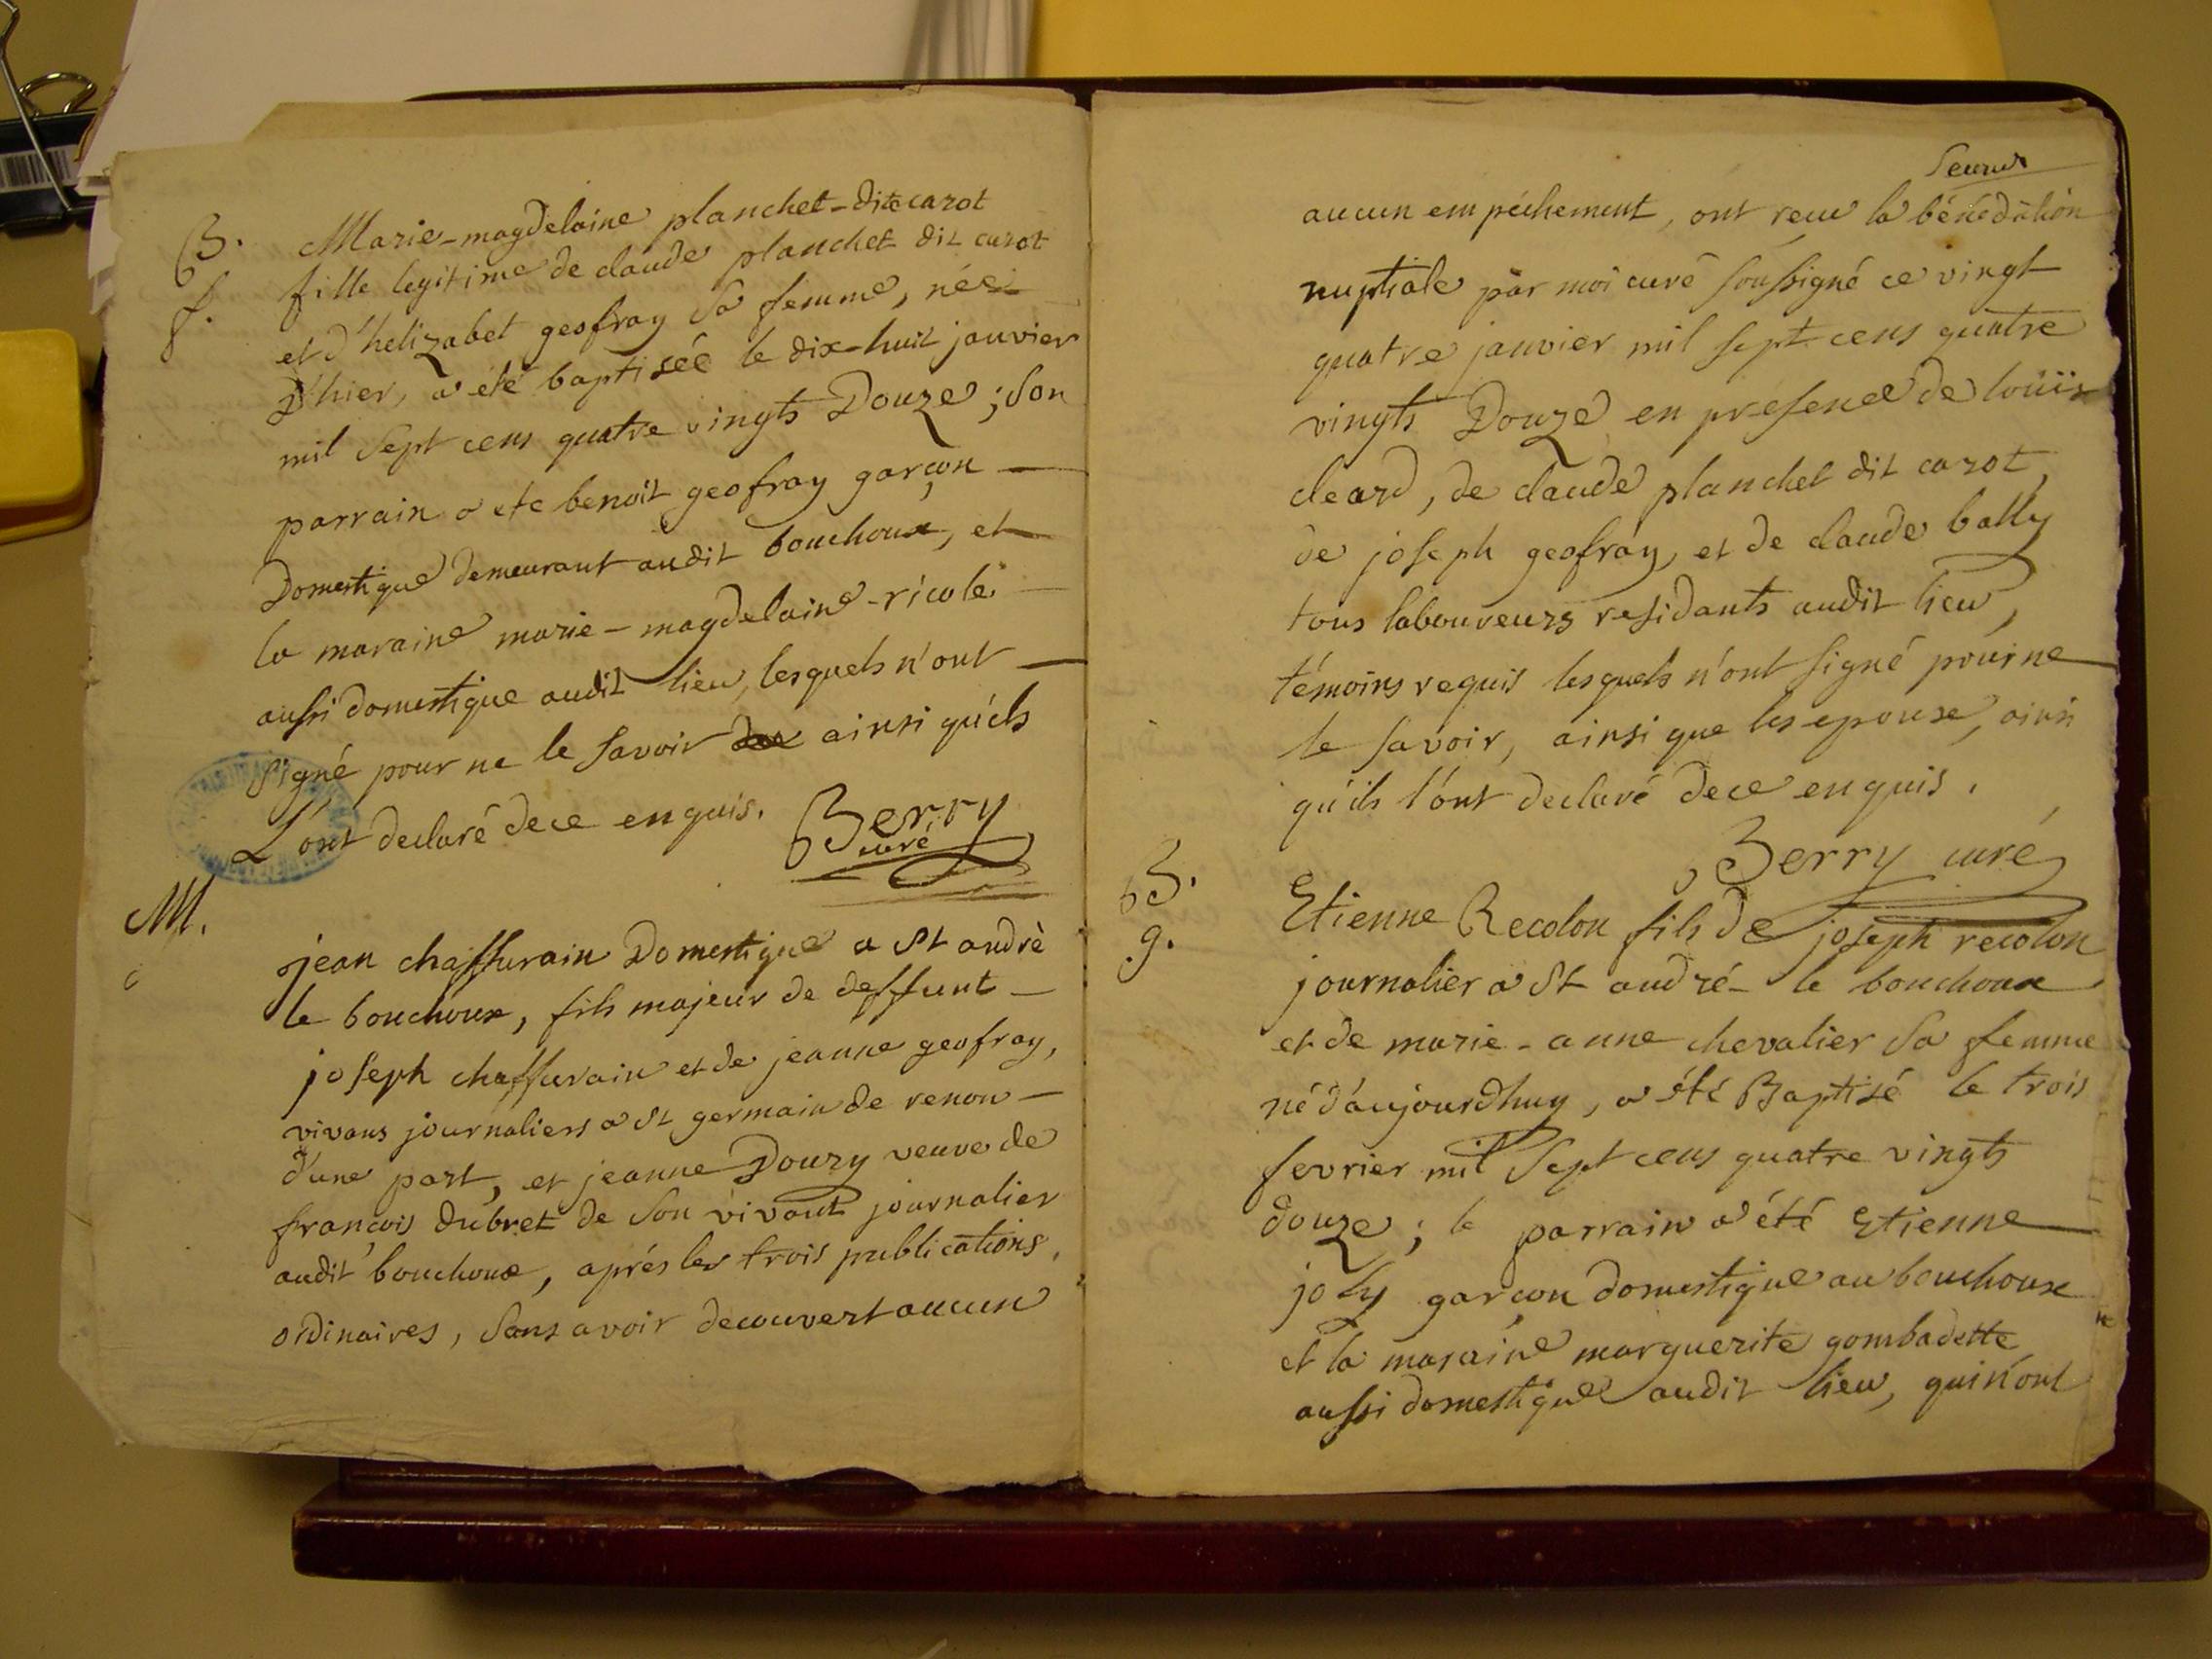 B. Marie-magdelaine planchet-dite carot
f. fille legitime de claude planchet dit carot
et d'helizabet geofray sa femme, née
D'hier, a été baptisée le dix-huit janvier
mil sept cens quatre vingts Douze; son
parrain a ete benoit geofray garçon
Domestique demeurant audit bouchoux, et
la maraine marie-magdelaine-ricole
aussi domestique audit lieu, lesquels n'ont
signé pour ne le savoir ainsi qu'ils
L'ont declaré de ce enquis. Berry
curé
M. jean chaffurain Domestique a St andrè
le bouchoux, fils majeur de deffunt
joseph chaffurain et de jeanne geofray,
vivans journaliers a St germain de renon
d'une part, et jeanne Douzy veuve de
françois dubret de son vivant journalier
audit bouchoux, aprés les trois publications
ordinaires, sans avoir decouvert aucun
aucun empéchement, ont receu la bénédiction
nuptiale par moi curé soussigné ce vingt
quatre janvier mil sept cens quatre
vingts Douze en présence de loüis
cleard, de claude planchet dit carot,
de joseph geofray, et de claude bally
tous laboureurs residants audit lieu,
témoins requis lesquels n'ont signé pour ne
le savoir, ainsi que les epoux, ainsi
qu'ils l'ont declaré de ce enquis.
Berry curé
B. Etienne Recolon fils de joseph recolon
g. journalier a St andré-le bouchoux
et de marie-anne chevalier sa femme
né d'aujourdhuy, a été Baptisé le trois
fevrier mil sept cens quatre vingts
douze; le parrain a été Etienne
joly garçon domestique au bouchoux
et la maraine marguerite gombadette
aussi domestique audit lieu, qui n'ont